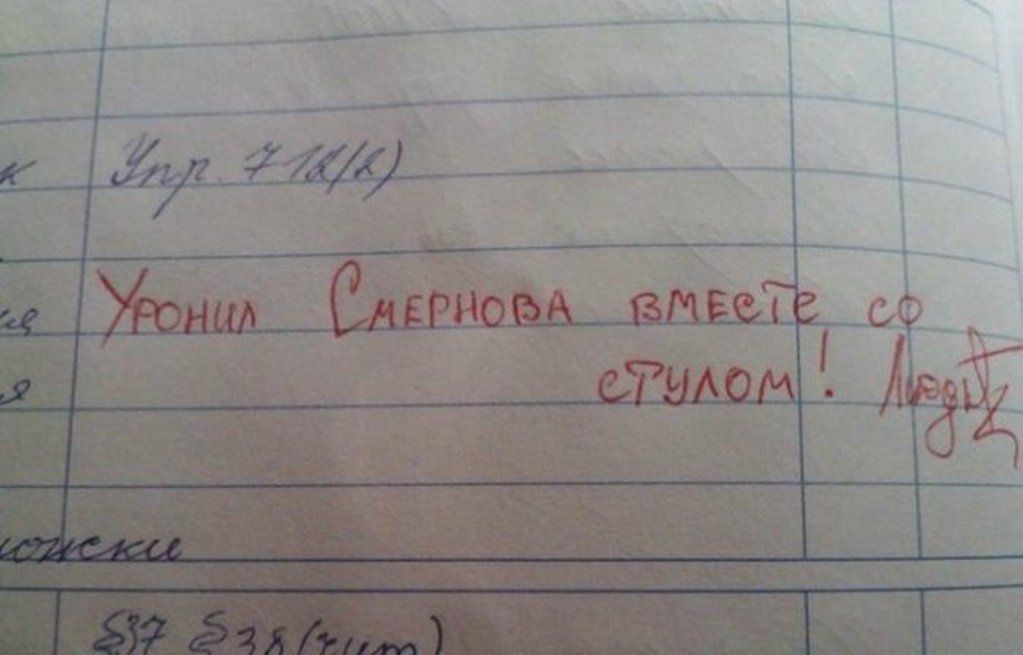 к Упр. 712(2)
Уронил Смернова вместе со
я стулом!
ложки
§37 §38(чит)